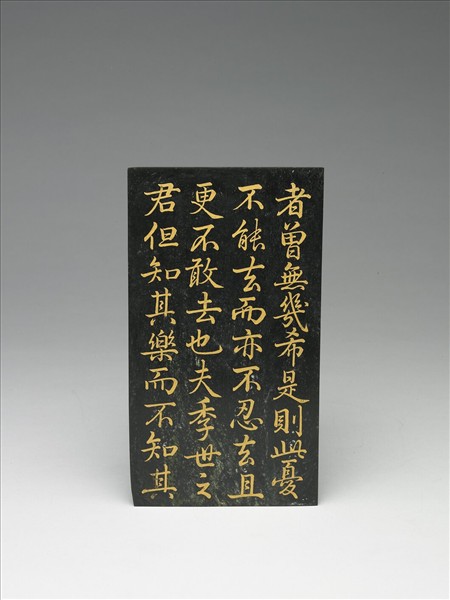 者曾無幾希是則此憂
不能去而亦不忍去且
更不敢去也夫季世之
君但知其樂而不知其